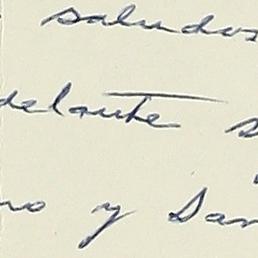 saludos
delante s
no y San